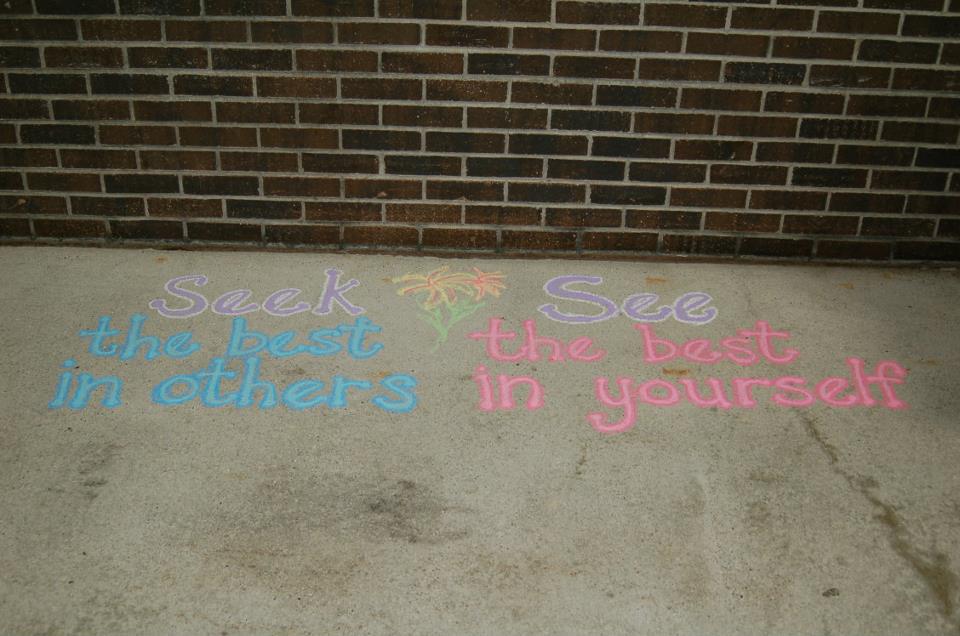 Seek
the best
in others
See
the best
in yourself